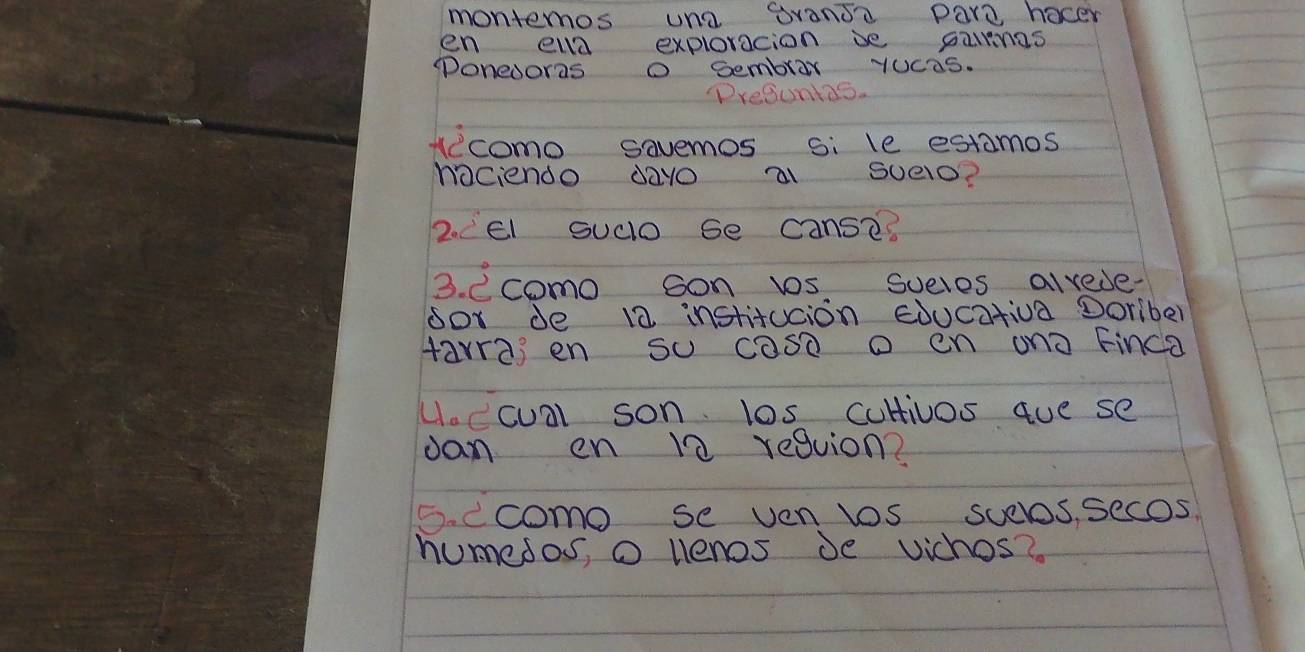 montemos una granja para hacer
en ella exploracion de gallinas
Ponedoras o sembrar yucas.
Preguntas.
1¿como savemos si le estamos
haciendo dayo al suelo?
2.¿El suelo se cansa?
3.¿como son los suelos alrede-
dor de la institución Educativa Doribel
tarra; en su casa o en una finca
4.¿cual son los cultivos que se
dan en la reguion?
5.¿como se ven los suelos, secos,
humedos, o llenos de vichos?